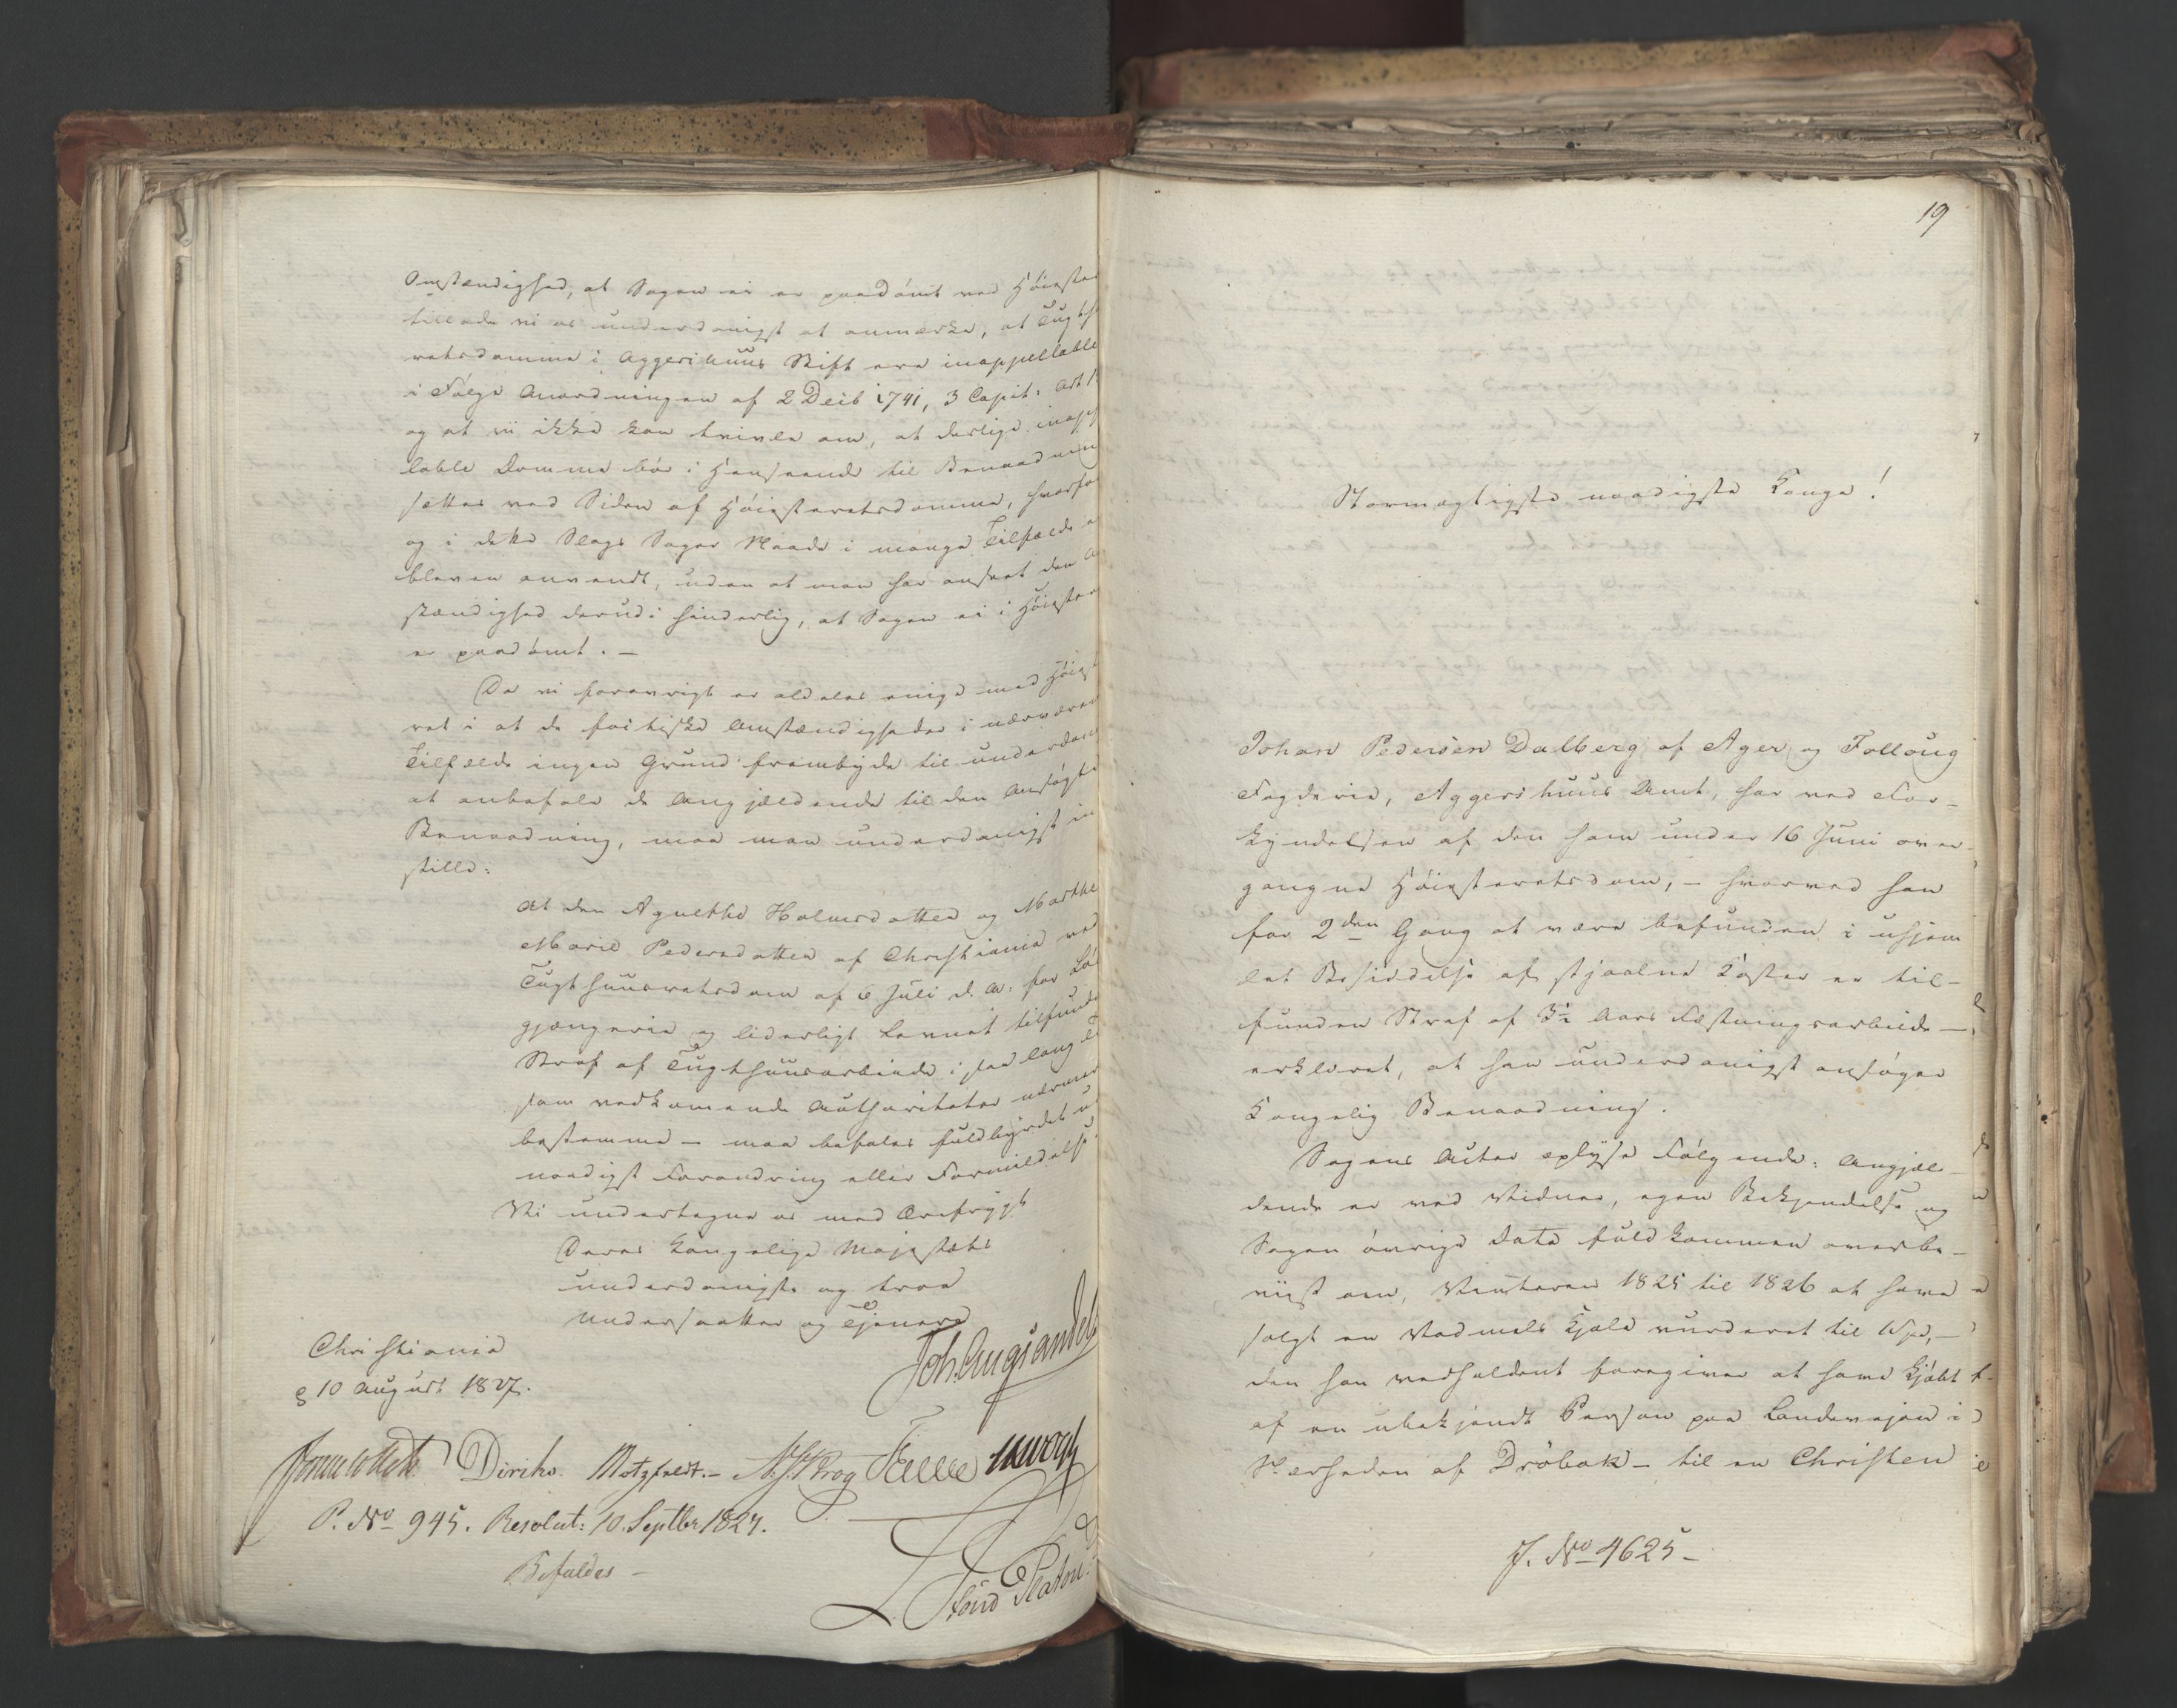 Omstændighed, at Sagen ei er paadömt ved Höieste
tillade vi os underdanigst at anmærke, at Tugth
retsdomme i Aggershuus Stift ere inappellable
i Følge Anordningen af 2 Decb 1741, 3 Capit: Art 1
og at vi ikke kan tvivle om, at deslige inap
lable Domme bör i Henseende til Benaadning
sættes ved Siden af Höiesteretsdomme, hvorfor
og i dette Slags Sager Naade i mange Tilfælde er
bleven anvendt, uden at man har anseet den Om
stændighed derudi hinderlig, at Sagen ei i Höieste
er paadömt. -
Da vi forøvrigt er aldeles enige med Höieste
ret i at de factiske Omstændigheder i nærværen
Tilfælde ingen Grund frembyde til underdan
at anbefale de Angjældende til den Ansøgte
Benaadning, maa man underdanigst ind
stille:
At den Agnethe Holmsdatter og Marthe
Marie Pedersdatter af Christiania ved
Tugthuusretsdom af 6 Juli d. A. for Lös
gjængerie og liderligt Levnet tilfundne
Straf af Tugthuusarbeide i saa lang Tid
som vedkommende Authoriteter nærmere
bestemme - maa befales fuldbyrdet uden
naadigst Forandring eller Formildelse.
Vi undertegne os med Ærefrygt
Deres Kongelige Majestæts
underdanigste og troe
Undersaatter og Tjenere
Christiania
d 10 August 1827.
Joh. Aug Sandels
Diriks. Motzfeldt. - N. J. Krog Fasting
P. No 945. Resolut: 10. Septbr 1827.
Bifaldes -
19
Stormægtigste naadigste Konge!
Johan Pedersen Dalberg af Ager og Follóug
Fogderie, Aggershuus Amt, har ved For-
kyndelsen af den ham under 16 Juni over-
gangne Höiesteretsdom, - hvorved han
for 2den Gang at være befunden i uhjem
let Besiddelse af stjaalne Koster er til-
funden Straf af 3½ Aars Fæstningsarbeide -
erklæret, at han underdanigst ansøger
Kongelig Benaadning.
Sagens Acter oplyse Følgende: Angjæl-
dende er ved Vidner, egen Bekjendelse og
Sagen övrige Data fuldkommen overbe-
viist om, Vinteren 1825 til 1826 at have
solgt en Vadmels Kjole vurderet til 10 Spd, -
den han vedholdent foregiver at have kjöbt
af en ubekjendt Person paa Landeveien i
Nærheden af Dröbak - til en Christen
J. No 4625 -